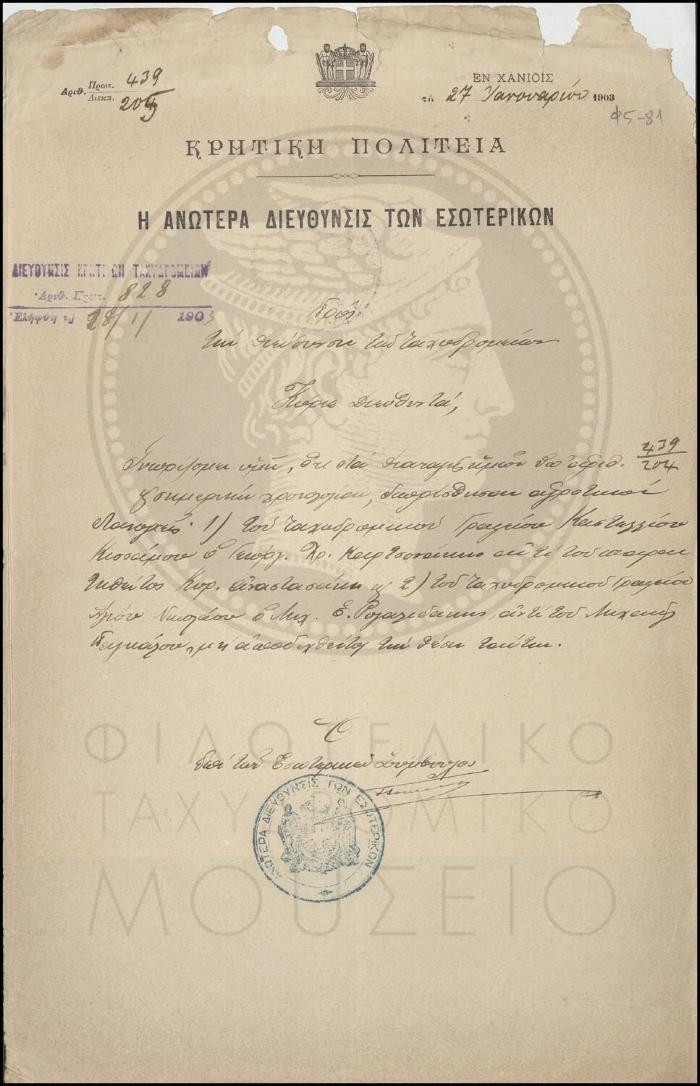 Αριθ. Πρωτ. 439
Διεκπ. 204
ΕΝ ΧΑΝΙΟΙΣ
τῇ 27 Ἰανουαρίου 1903
Φ5-81
ΚΡΗΤΙΚΗ ΠΟΛΙΤΕΙΑ
Η ΑΝΩΤΕΡΑ ΔΙΕΥΘΥΝΣΙΣ ΤΩΝ ΕΣΩΤΕΡΙΚΩΝ
ΔΙΕΥΘΥΝΣΙΣ ΚΡΗΤΙΚΩΝ ΤΑΧΥΔΡΟΜΕΙΩΝ
Ἀριθ. Πρωτ. 828
Ἐλήφθη τῇ 28/1/ 1903
Πρὸς
τὴν Διεύθυνσιν τῶν Ταχυδρομείων
Κύριε Διευθυντά,
Γνωρίζομεν ὑμῖν, ὅτι διὰ διαταγῆς ἡμῶν ὑπ' ἀριθ. 439/204
σημερινὴν χρονολογίαν, διωρίσθησαν ἀγροτικοὶ
διανομεῖς 1) τοῦ Ταχυδρομικοῦ Γραφείου Καστελλίου
Κισσάμου ὁ Γεώργ. Χρ. ἀντὶ τοῦ παραι
τηθέντος Κυρ. Ἀναστασάκη κ 2) τοῦ Ταχυδρομικοῦ Γραφείου
Ἁγίου Νικολάου ὁ Μιχ. Ε. ἀντὶ τοῦ Μιχαὴλ
μὴ ἀποδεχθέντος τὴν θέσιν ταύτην.
Ὁ
ἐπὶ τῶν Ἐσωτερικῶν Σύμβουλος
ΑΝΩΤΕΡΑ ΔΙΕΥΘΥΝΣΙΣ ΤΩΝ ΕΣΩΤΕΡΙΚΩΝ
ΦΙΛΟΤΕΛΙΚΟ
ΤΑΧΥΔΡΟΜΙΚΟ
ΜΟΥΣΕΙΟ